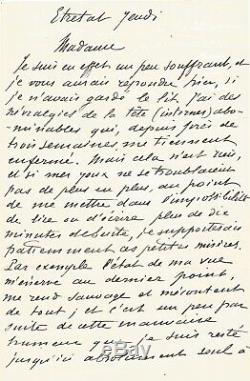 Etretat Jeudi
Madame
Je suis en effet un peu souffrant, et
je vous aurais répondu hier, si
je n'avais gardé le lit. J'ai des
névralgies de la tête (internes) abo-
minables qui, depuis près de
trois semaines, me tiennent
enfermé. Mais cela n'est rien,
et si mes yeux ne se troublaient
pas de plus en plus, au point
de me mettre dans l'impossibilité
de lire ou d'écrire plus de dix
minutes de suite, je supporterais
patiemment ces petites misères.
Par exemple l'état de ma vue
m'énerve au dernier point,
me rend sauvage et mécontent
de tout ; et c'est un peu par
suite de cette mauvaise
humeur que je suis resté
jusqu'ici absolument seul à